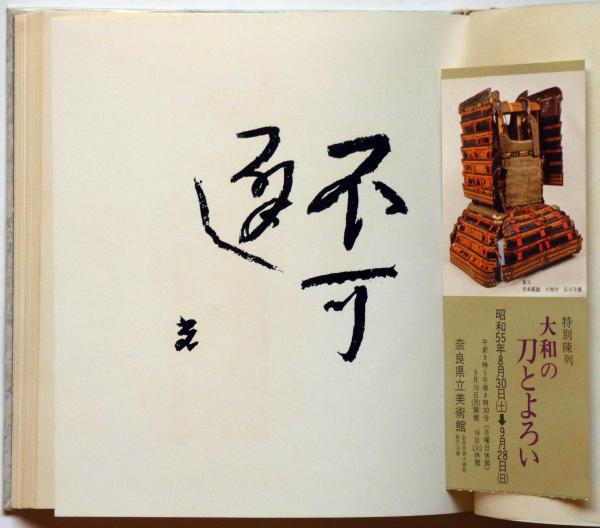 不可
重文
大袖付
特別陳列
大和の
刀とよろい
昭和55年8月30日(土)➡9月28日(日)
午前9時〜午後4時30分(月曜日休館)
9月15日(月)開館 16日(火)休館
奈良県立美術館